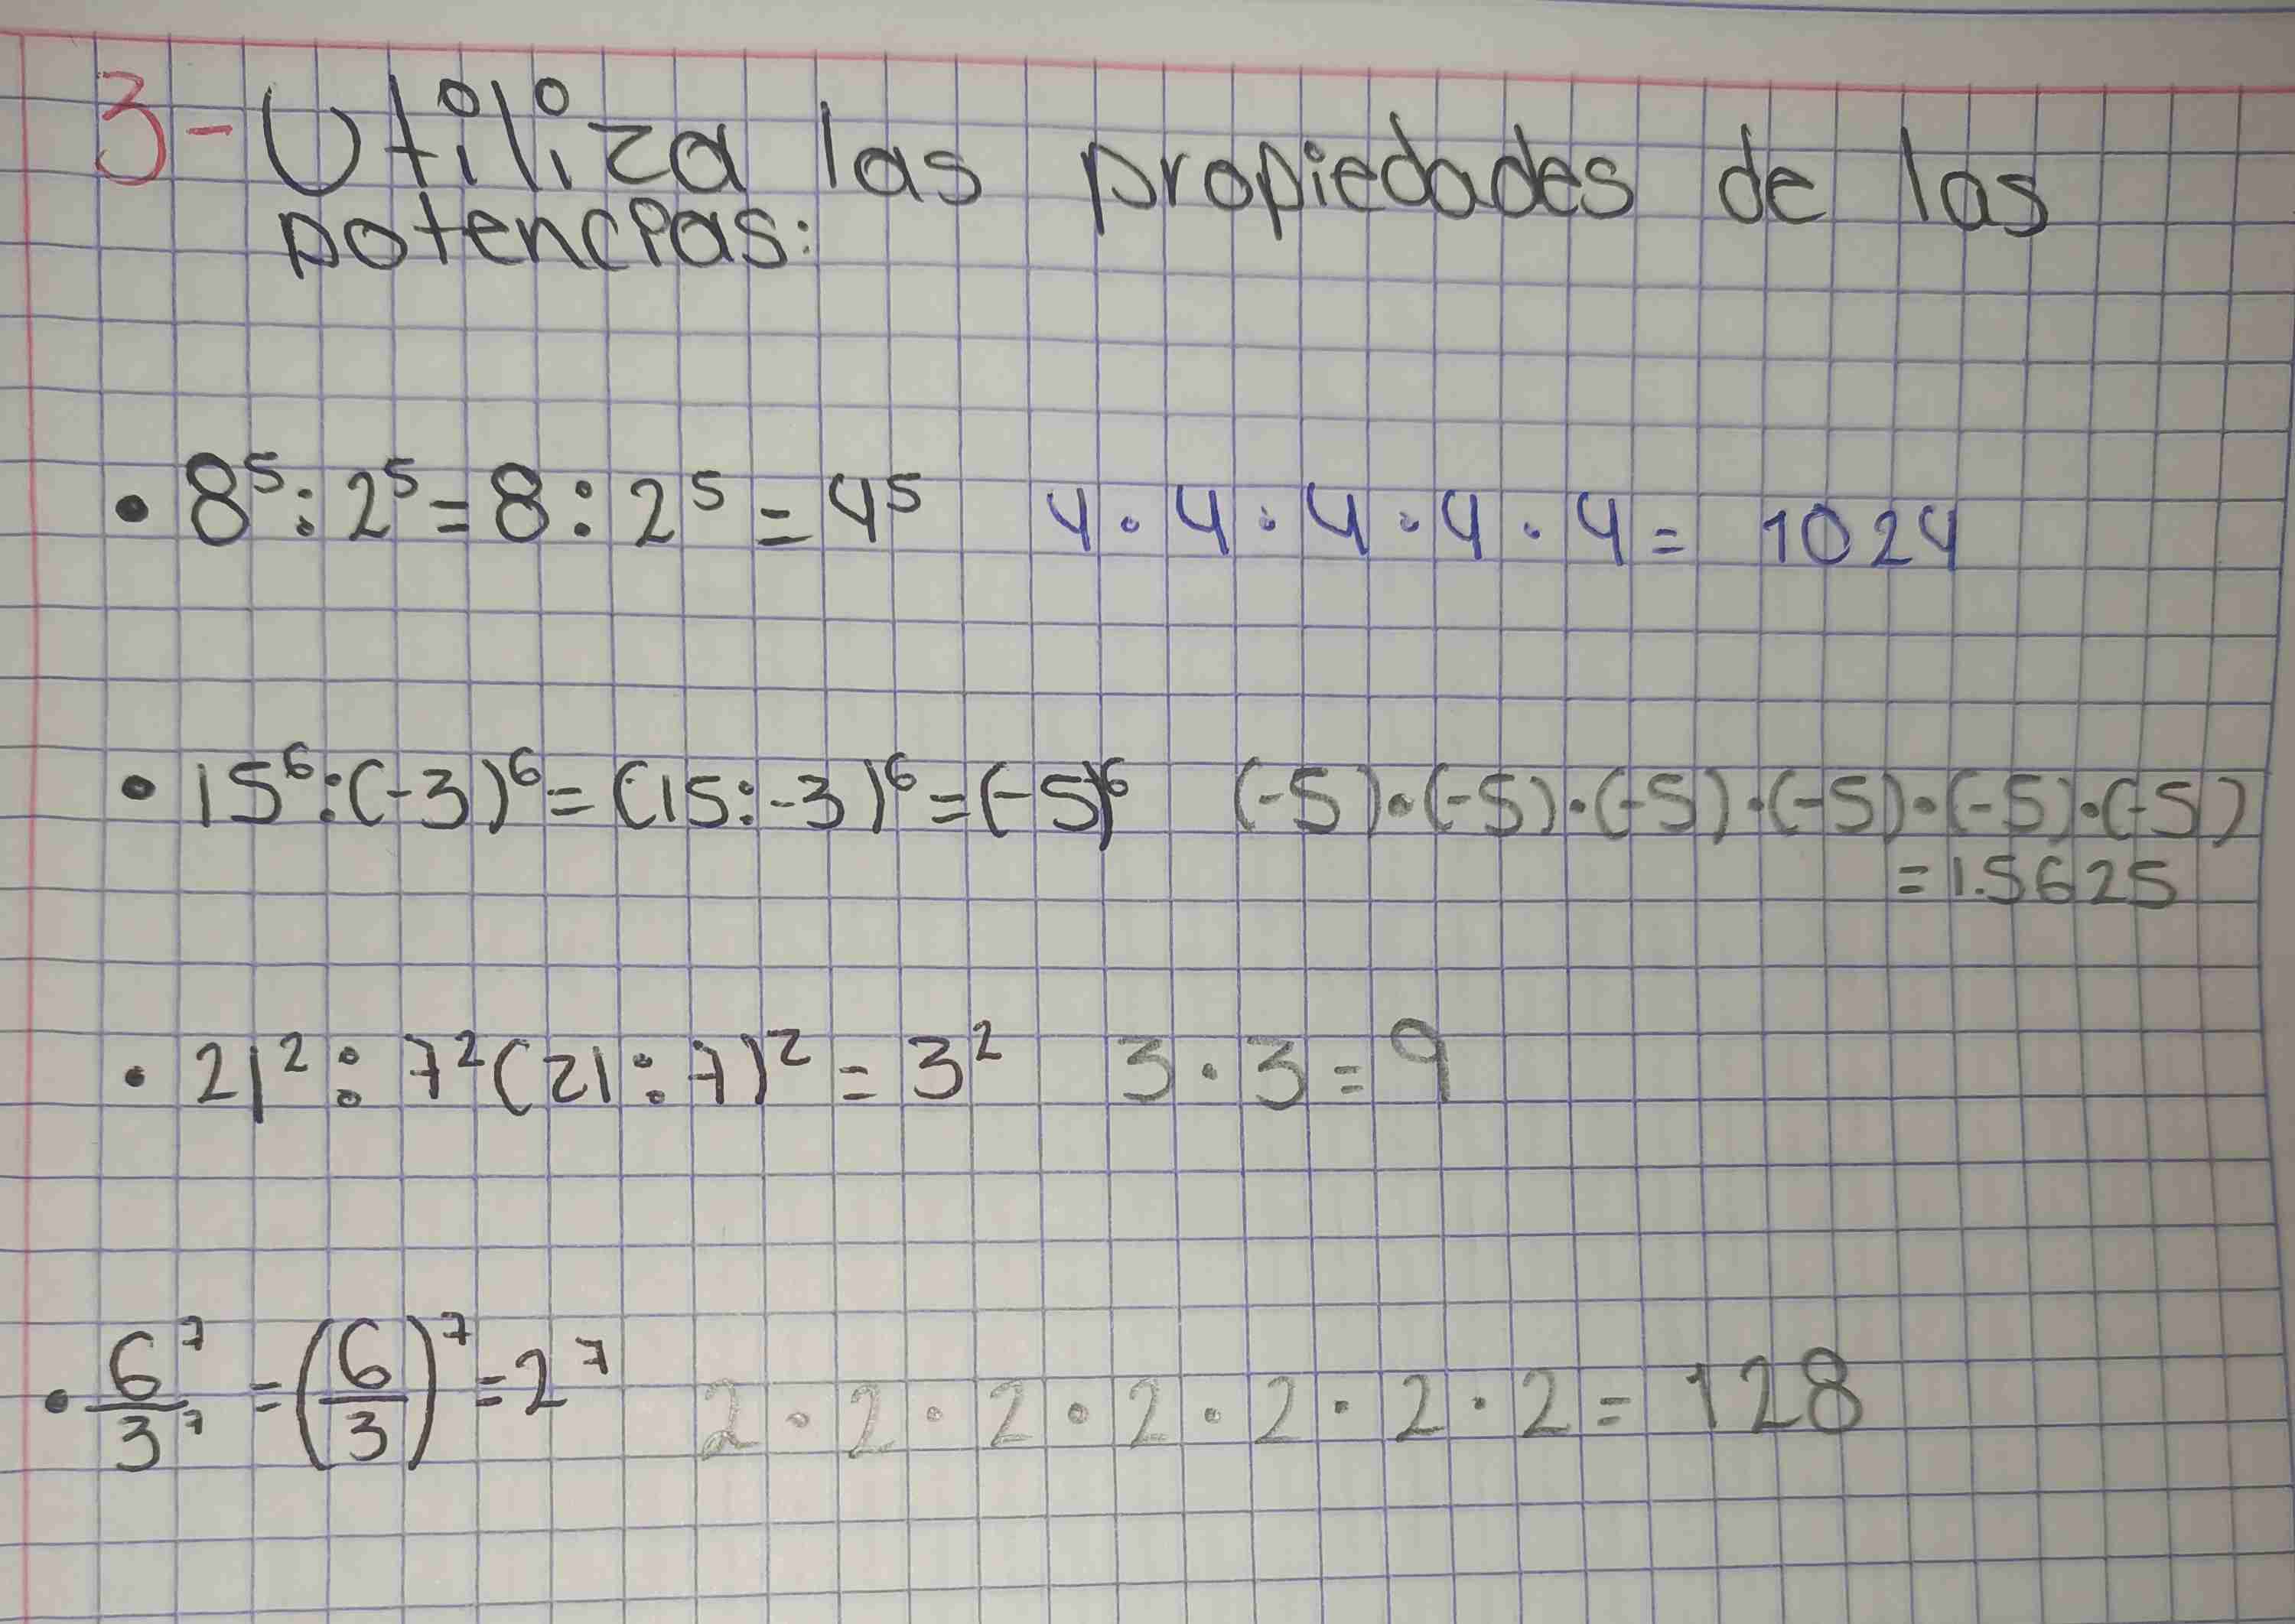 3- Utiliza las propiedades de las
potencias:
• 8⁵ : 2⁵ = 8 : 2⁵ = 4⁵ 4 · 4 · 4 · 4 · 4 = 1024
• 15⁶ : (-3)⁶ = (15 : -3)⁶ = (-5)⁶ (-5) · (-5) · (-5) · (-5) · (-5) · (-5)
= 1.5625
• 21² : 7² (21 : 7)² = 3² 3 · 3 = 9
• 6⁷/3⁷ = (6/3)⁷ = 2⁷ 2 · 2 · 2 · 2 · 2 · 2 · 2 = 128